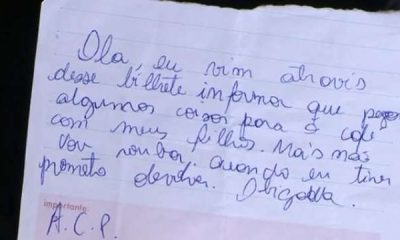 Ola, eu vim atravis
desse bilhete informa que pegei
algumas coisas para o café
com meus filhos. Mais não
vou rouba, quando eu tiver
prometo devolver. Obrigada.
importante
A.C.P.